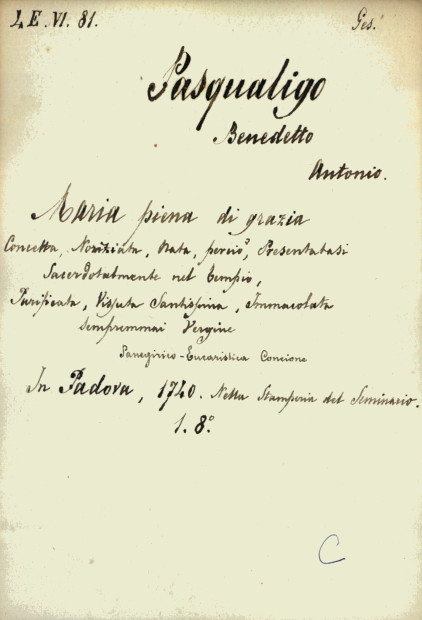 4 E. VI. 81.
Ges.
Pasqualigo
Benedetto
Antonio.
Maria piena di grazia
Concetta, Noziziata, Nata, perciò, Presentatasi
Sacerdotalmente nel Tempio,
Purificata, Vissuta Santissima, Immacolata
Sempremmai Vergine
Panegirico-Eucaristica Concione
In Padova, 1740. Nella Stamperia del Seminario.
1. 8º.
C